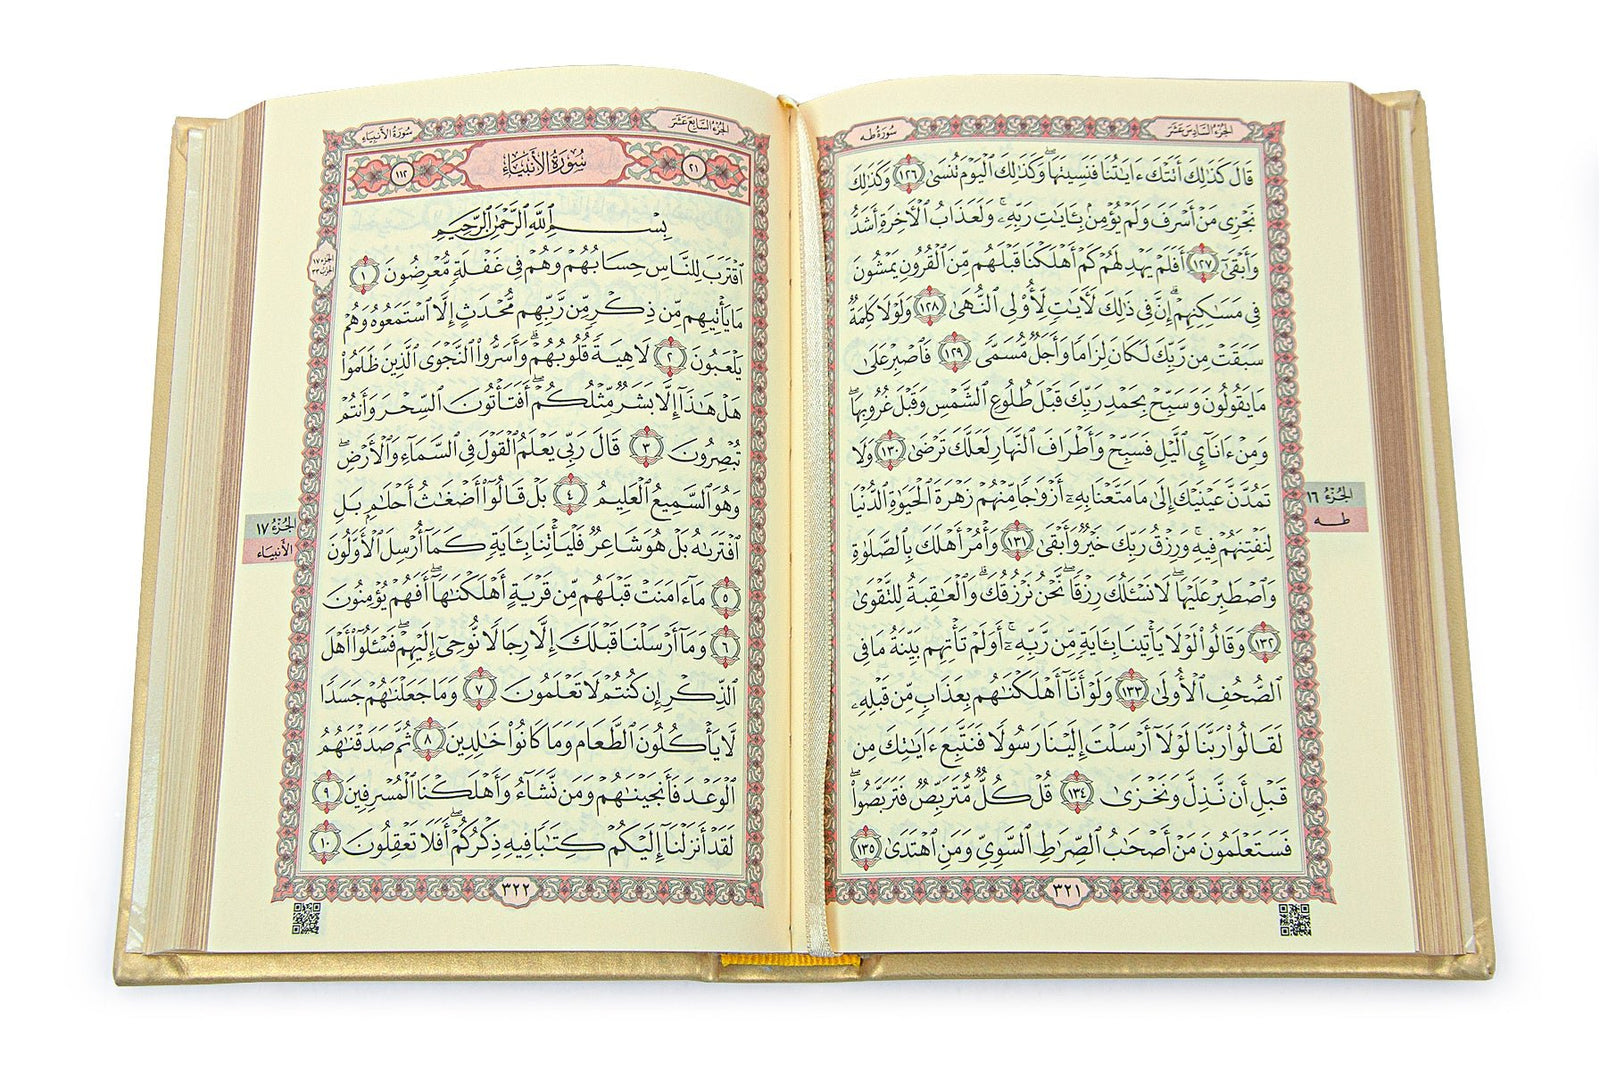 سُورَةُ طه
الجُزْءُ السَّادِسَ عَشَرَ
قَالَ كَذَٰلِكَ أَتَتْكَ ءَايَٰتُنَا فَنَسِيتَهَاۖ وَكَذَٰلِكَ ٱلْيَوْمَ تُنسَىٰ ١٢٦ وَكَذَٰلِكَ
نَجْزِى مَنْ أَسْرَفَ وَلَمْ يُؤْمِنۢ بِـَٔايَٰتِ رَبِّهِۦۚ وَلَعَذَابُ ٱلْأَخِرَةِ أَشَدُّ
وَأَبْقَىٰٓ ١٢٧ أَفَلَمْ يَهْدِ لَهُمْ كَمْ أَهْلَكْنَا قَبْلَهُم مِّنَ ٱلْقُرُونِ يَمْشُونَ
فِى مَسَٰكِنِهِمْۗ إِنَّ فِى ذَٰلِكَ لَأَيَٰتٍ لِّأُو۟لِى ٱلنُّهَىٰ ١٢٨ وَلَوْلَا كَلِمَةٌ
سَبَقَتْ مِن رَّبِّكَ لَكَانَ لِزَامًا وَأَجَلٌ مُّسَمًّى ١٢٩ فَٱصْبِرْ عَلَىٰ
مَا يَقُولُونَ وَسَبِّحْ بِحَمْدِ رَبِّكَ قَبْلَ طُلُوعِ ٱلشَّمْسِ وَقَبْلَ غُرُوبِهَاۖ
وَمِنْ ءَانَآئِ ٱلَّيْلِ فَسَبِّحْ وَأَطْرَافَ ٱلنَّهَارِ لَعَلَّكَ تَرْضَىٰ ١٣٠ وَلَا
تَمُدَّنَّ عَيْنَيْكَ إِلَىٰ مَا مَتَّعْنَا بِهِۦٓ أَزْوَٰجًا مِّنْهُمْ زَهْرَةَ ٱلْحَيَوٰةِ ٱلدُّنْيَا
لِنَفْتِنَهُمْ فِيهِۚ وَرِزْقُ رَبِّكَ خَيْرٌ وَأَبْقَىٰ ١٣١ وَأْمُرْ أَهْلَكَ بِٱلصَّلَوٰةِ
وَٱصْطَبِرْ عَلَيْهَاۖ لَا نَسْـَٔلُكَ رِزْقًاۖ نَّحْنُ نَرْزُقُكَۗ وَٱلْعَٰقِبَةُ لِلتَّقْوَىٰ
١٣٢ وَقَالُوا۟ لَوْلَا يَأْتِينَا بِـَٔايَةٍ مِّن رَّبِّهِۦٓۚ أَوَلَمْ تَأْتِهِم بَيِّنَةُ مَا فِى
ٱلصُّحُفِ ٱلْأُولَىٰ ١٣٣ وَلَوْ أَنَّآ أَهْلَكْنَٰهُم بِعَذَابٍ مِّن قَبْلِهِۦ
لَقَالُوا۟ رَبَّنَا لَوْلَآ أَرْسَلْتَ إِلَيْنَا رَسُولًا فَنَتَّبِعَ ءَايَٰتِكَ مِن
قَبْلِ أَن نَّذِلَّ وَنَخْزَىٰ ١٣٤ قُلْ كُلٌّ مُّتَرَبِّصٌ فَتَرَبَّصُوا۟ۖ
فَسَتَعْلَمُونَ مَنْ أَصْحَٰبُ ٱلصِّرَٰطِ ٱلسَّوِىِّ وَمَنِ ٱهْتَدَىٰ ١٣٥
٣٢١
الجُزْءُ ١٦
طه
الجُزْءُ السَّابِعَ عَشَرَ
سُورَةُ الأَنبِيَاءِ
٢١
سُورَةُ الأَنبِيَاءِ
١١٢
بِسْمِ ٱللَّهِ ٱلرَّحْمَٰنِ ٱلرَّحِيمِ
ٱقْتَرَبَ لِلنَّاسِ حِسَابُهُمْ وَهُمْ فِى غَفْلَةٍ مُّعْرِضُونَ ١
مَا يَأْتِيهِم مِّن ذِكْرٍ مِّن رَّبِّهِم مُّحْدَثٍ إِلَّا ٱسْتَمَعُوهُ وَهُمْ
يَلْعَبُونَ ٢ لَاهِيَةً قُلُوبُهُمْۗ وَأَسَرُّوا۟ ٱلنَّجْوَى ٱلَّذِينَ ظَلَمُوا۟
هَلْ هَٰذَآ إِلَّا بَشَرٌ مِّثْلُكُمْۖ أَفَتَأْتُونَ ٱلسِّحْرَ وَأَنتُمْ
تُبْصِرُونَ ٣ قَالَ رَبِّى يَعْلَمُ ٱلْقَوْلَ فِى ٱلسَّمَآءِ وَٱلْأَرْضِۖ
وَهُوَ ٱلسَّمِيعُ ٱلْعَلِيمُ ٤ بَلْ قَالُوٓا۟ أَضْغَٰثُ أَحْلَٰمٍۭ بَلِ
ٱفْتَرَىٰهُ بَلْ هُوَ شَاعِرٌ فَلْيَأْتِنَا بِـَٔايَةٍ كَمَآ أُرْسِلَ ٱلْأَوَّلُونَ
٥ مَآ ءَامَنَتْ قَبْلَهُم مِّن قَرْيَةٍ أَهْلَكْنَٰهَآۖ أَفَهُمْ يُؤْمِنُونَ
٦ وَمَآ أَرْسَلْنَا قَبْلَكَ إِلَّا رِجَالًا نُّوحِىٓ إِلَيْهِمْۖ فَسْـَٔلُوٓا۟ أَهْلَ
ٱلذِّكْرِ إِن كُنتُمْ لَا تَعْلَمُونَ ٧ وَمَا جَعَلْنَٰهُمْ جَسَدًا
لَّا يَأْكُلُونَ ٱلطَّعَامَ وَمَا كَانُوا۟ خَٰلِدِينَ ٨ ثُمَّ صَدَقْنَٰهُمُ
ٱلْوَعْدَ فَأَنجَيْنَٰهُمْ وَمَن نَّشَآءُ وَأَهْلَكْنَا ٱلْمُسْرِفِينَ ٩
لَقَدْ أَنزَلْنَآ إِلَيْكُمْ كِتَٰبًا فِيهِ ذِكْرُكُمْۖ أَفَلَا تَعْقِلُونَ ١٠
٣٢٢
الجُزْء ١٧
الحِزْب ٣٣
الجُزْءُ ١٧
الأَنبِيَاء